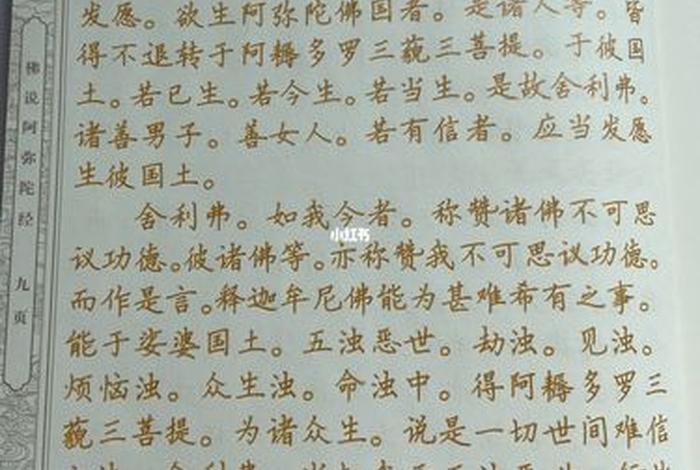 发愿。欲生阿弥陀佛国者。是诸人等。皆
得不退转于阿耨多罗三藐三菩提。于彼国
土。若已生。若今生。若当生。是故舍利弗。
诸善男子。善女人。若有信者。应当发愿
生彼国土。
舍利弗。如我今者。称赞诸佛不可思
议功德。彼诸佛等。亦称赞我不可思议功德。
而作是言。释迦牟尼佛能为甚难希有之事。
能于娑婆国土。五浊恶世。劫浊。见浊。
烦恼浊。众生浊。命浊中。得阿耨多罗三
藐三菩提。为诸众生。说是一切世间难信
佛说阿弥陀经 九页
小红书